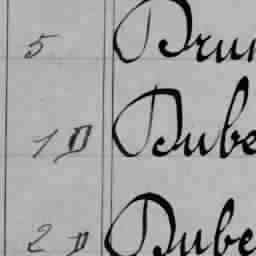 5 Brun
1 D Dube
2 D Dube